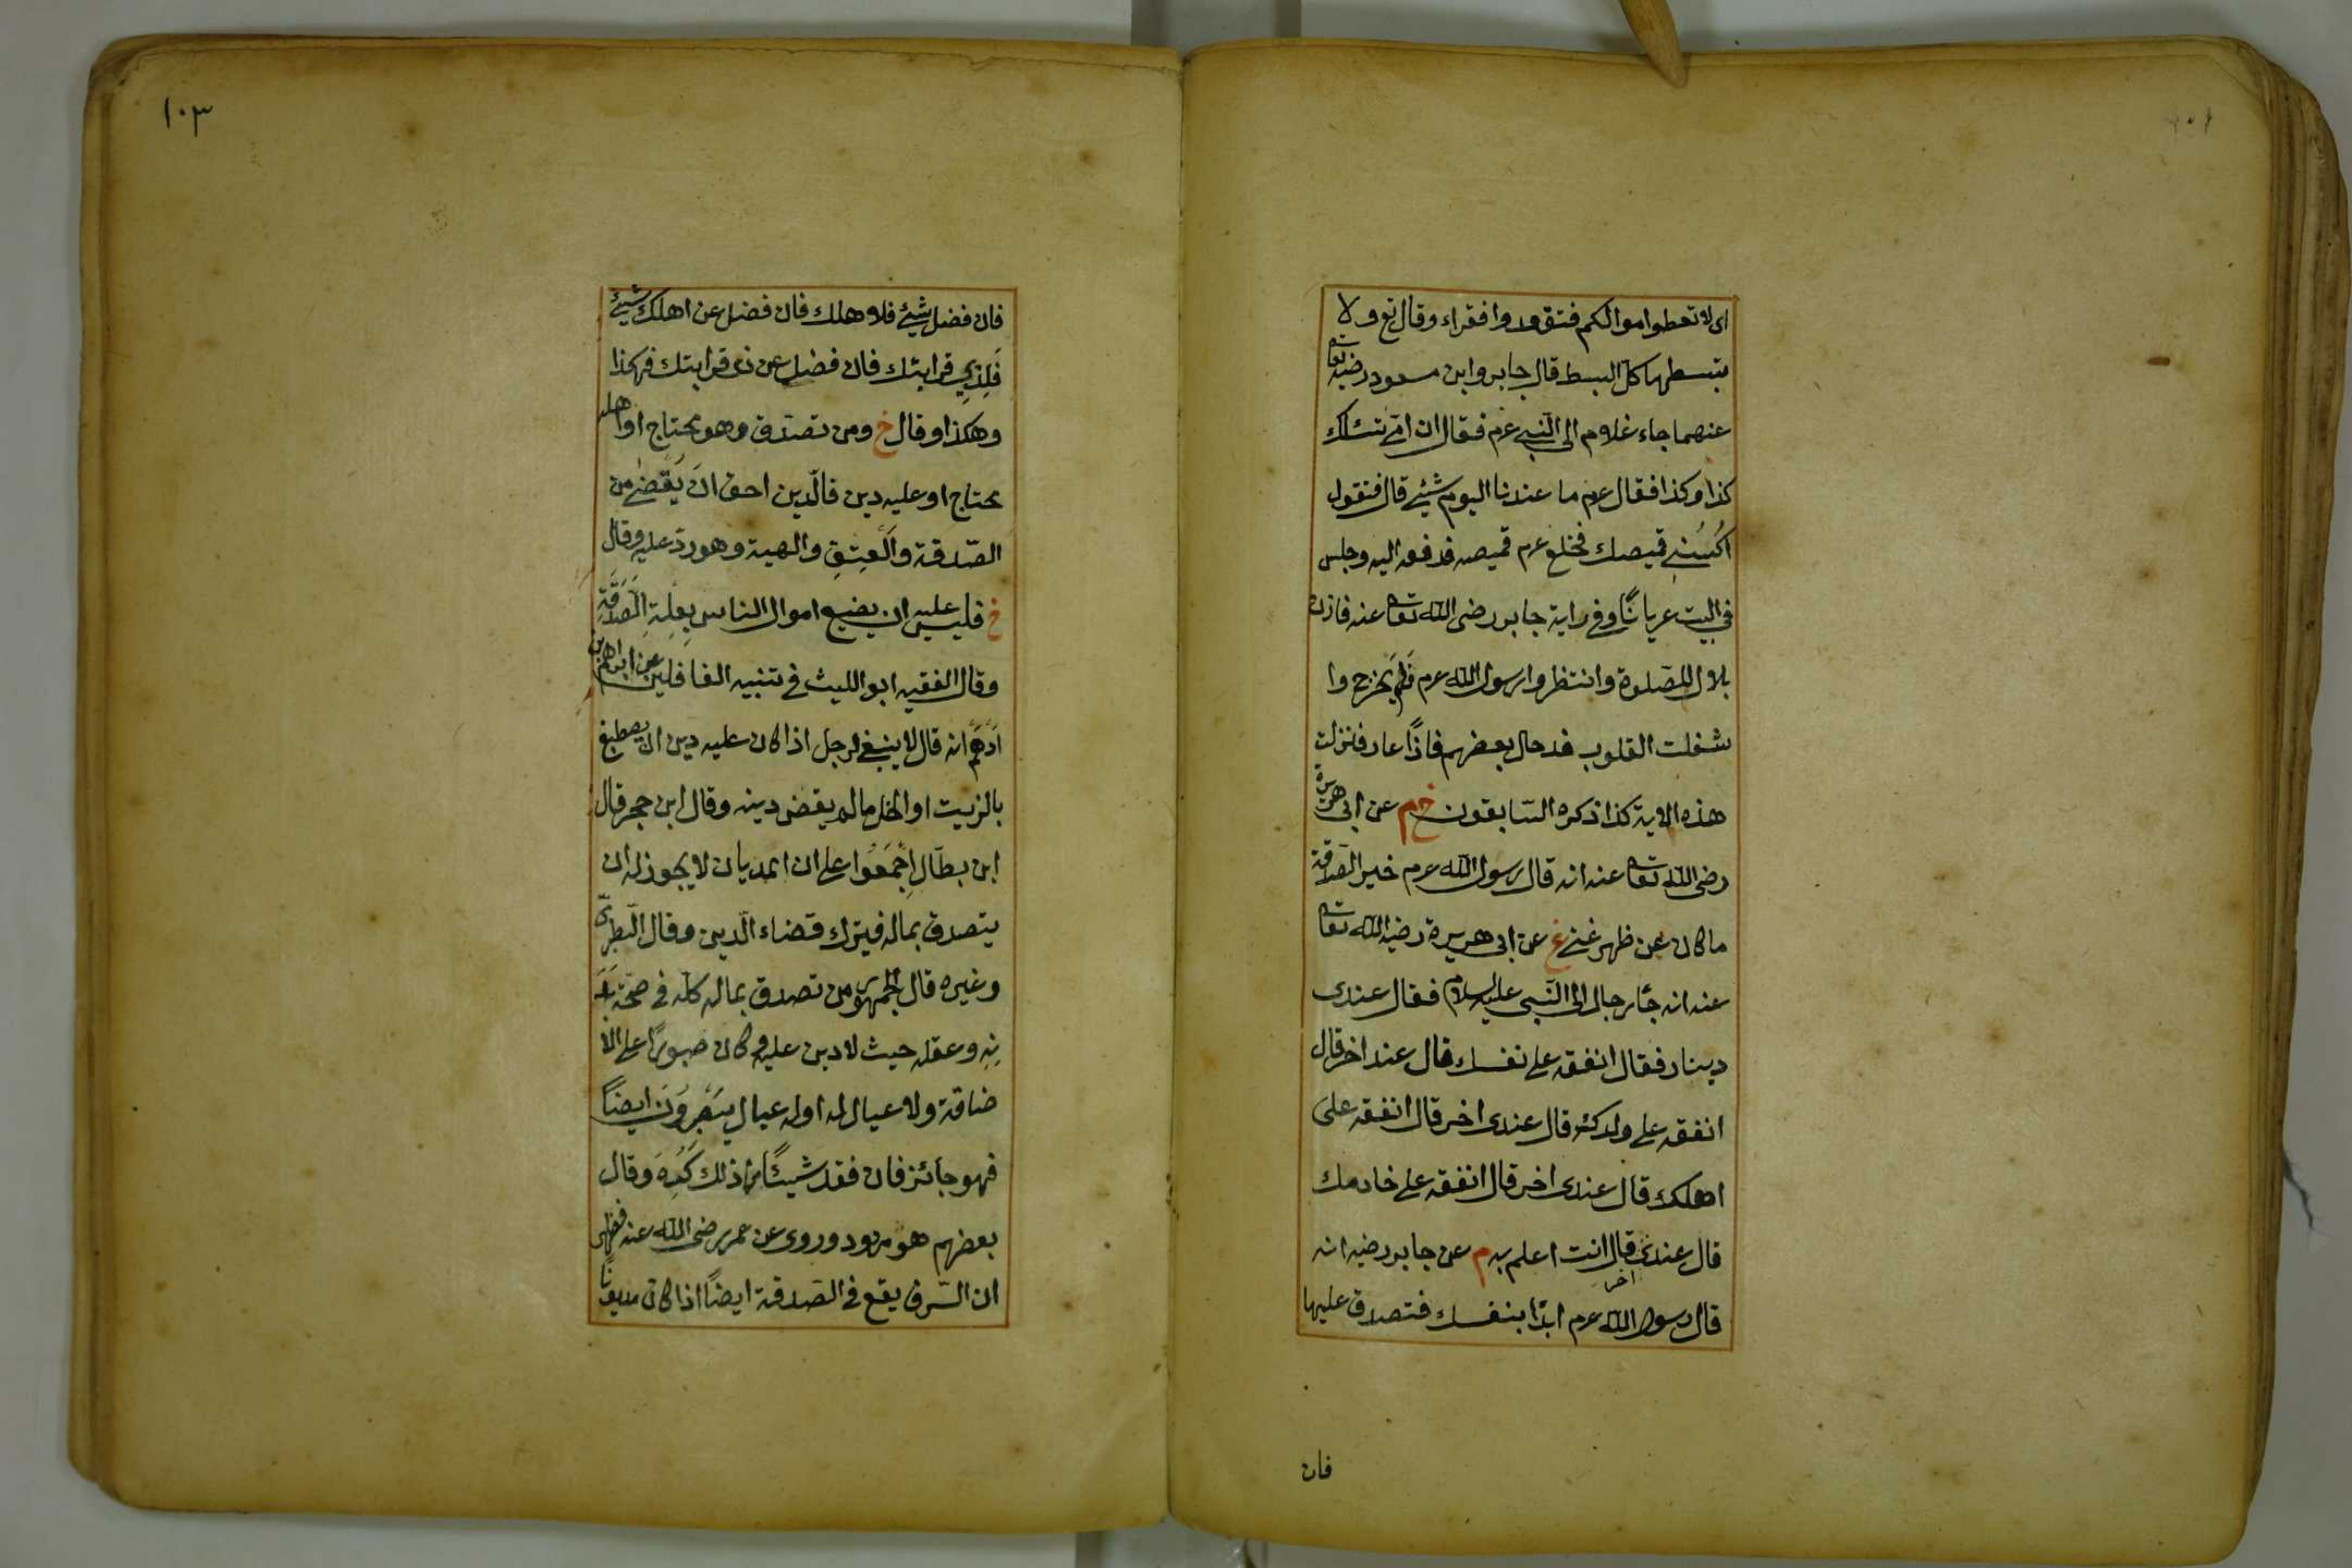 اى لا تعطوا اموالكم فتقعدوا فقراء وقال تع ولا
تبسطها كل البسط قال جابر وابن مسعود رضى الله تعا
عنهما جاء غلام الى النبى عم فقال ان امى تسئلك
كذا وكذا فقال عم ما عندنا اليوم شيئ قال فتقول
اكسنى قميصك فخلع عم قميصه فدفعه اليه وجلس
فى البيت عريانًا وفى راية جابر رضى الله تعا عنه فاذن
بلال للصلوة وانتظروا رسول الله عم فلم يخرج وا
شغلت القلوب فدخل بعضهم فاذًا عار فنزلت
هذه الاية كذا ذكره السّابقون خ م عن ابى هريرة
رضى الله تعا عنه انه قال رسول الله عم خير الصّدقة
ما كان عن ظهر غنى غ عن ابى هريرة رضيه الله تعا
عنه انه جاء رجال الى النّبى عليه السلام فقال عندى
دينار فقال انفقه على نفسك قال عند اخر قال
انفقه على ولدك قال عندى اخر قال انفقه على
اهلك قال عندى اخر قال انفقه على خادمك
قال عندى اخر قال انت اعلم به م عن جابر رضيه انه
قال رسول الله عم ابدًا بنفسك فتصدق عليها
فان
١٠٣
فان فضل شيئ فلاهلك فان فضل عن اهلك شيئ
فَلِذِي قرابتك فان فضل عن ذى قرابتك فهكذا
وهكذا وقال خ ومن تصدّق وهو محتاج او اهله
محتاج او عليه دين فالّدين احق ان يُقضى من
الصّدقة والعتق والهبة وهو ردّ عليه وقال
خ فليس عليه ان يضيع اموال الناس بعلة الصَدَقَةِ
وقال الفقيه ابو الليث فى تنبيه الغافلين عن ابراهم بن
ادهم انه قال لا ينبغى لرجل اذا كان عليه دين ان يصطبغ
بالزيت او الخل ما لم يقض دينه وقال ابن حجر قال
ابن بطّال اجمعوا على ان المديان لا يجوز له ان
يتصدق بماله فيترك قضاء الّدين وقال الّطبرى
وغيره قال الجمهور من تصدق بماله كلّه فى صحّة بَدَ
نِهِ وعقله حيث لا دين عليه وكان صبورًا على الا
ضاقة ولا عيال له او له عيال يَصْبِرُونَ ايضاً
فهو جائز فان فقد شيئًا من ذلك كُرِهَ وقال
بعضهم هو مردود وروى عن عمر رضى الله عنه فظهر
ان السّرف يقع فى الصّدقة ايضاً اذا كان مديونًا